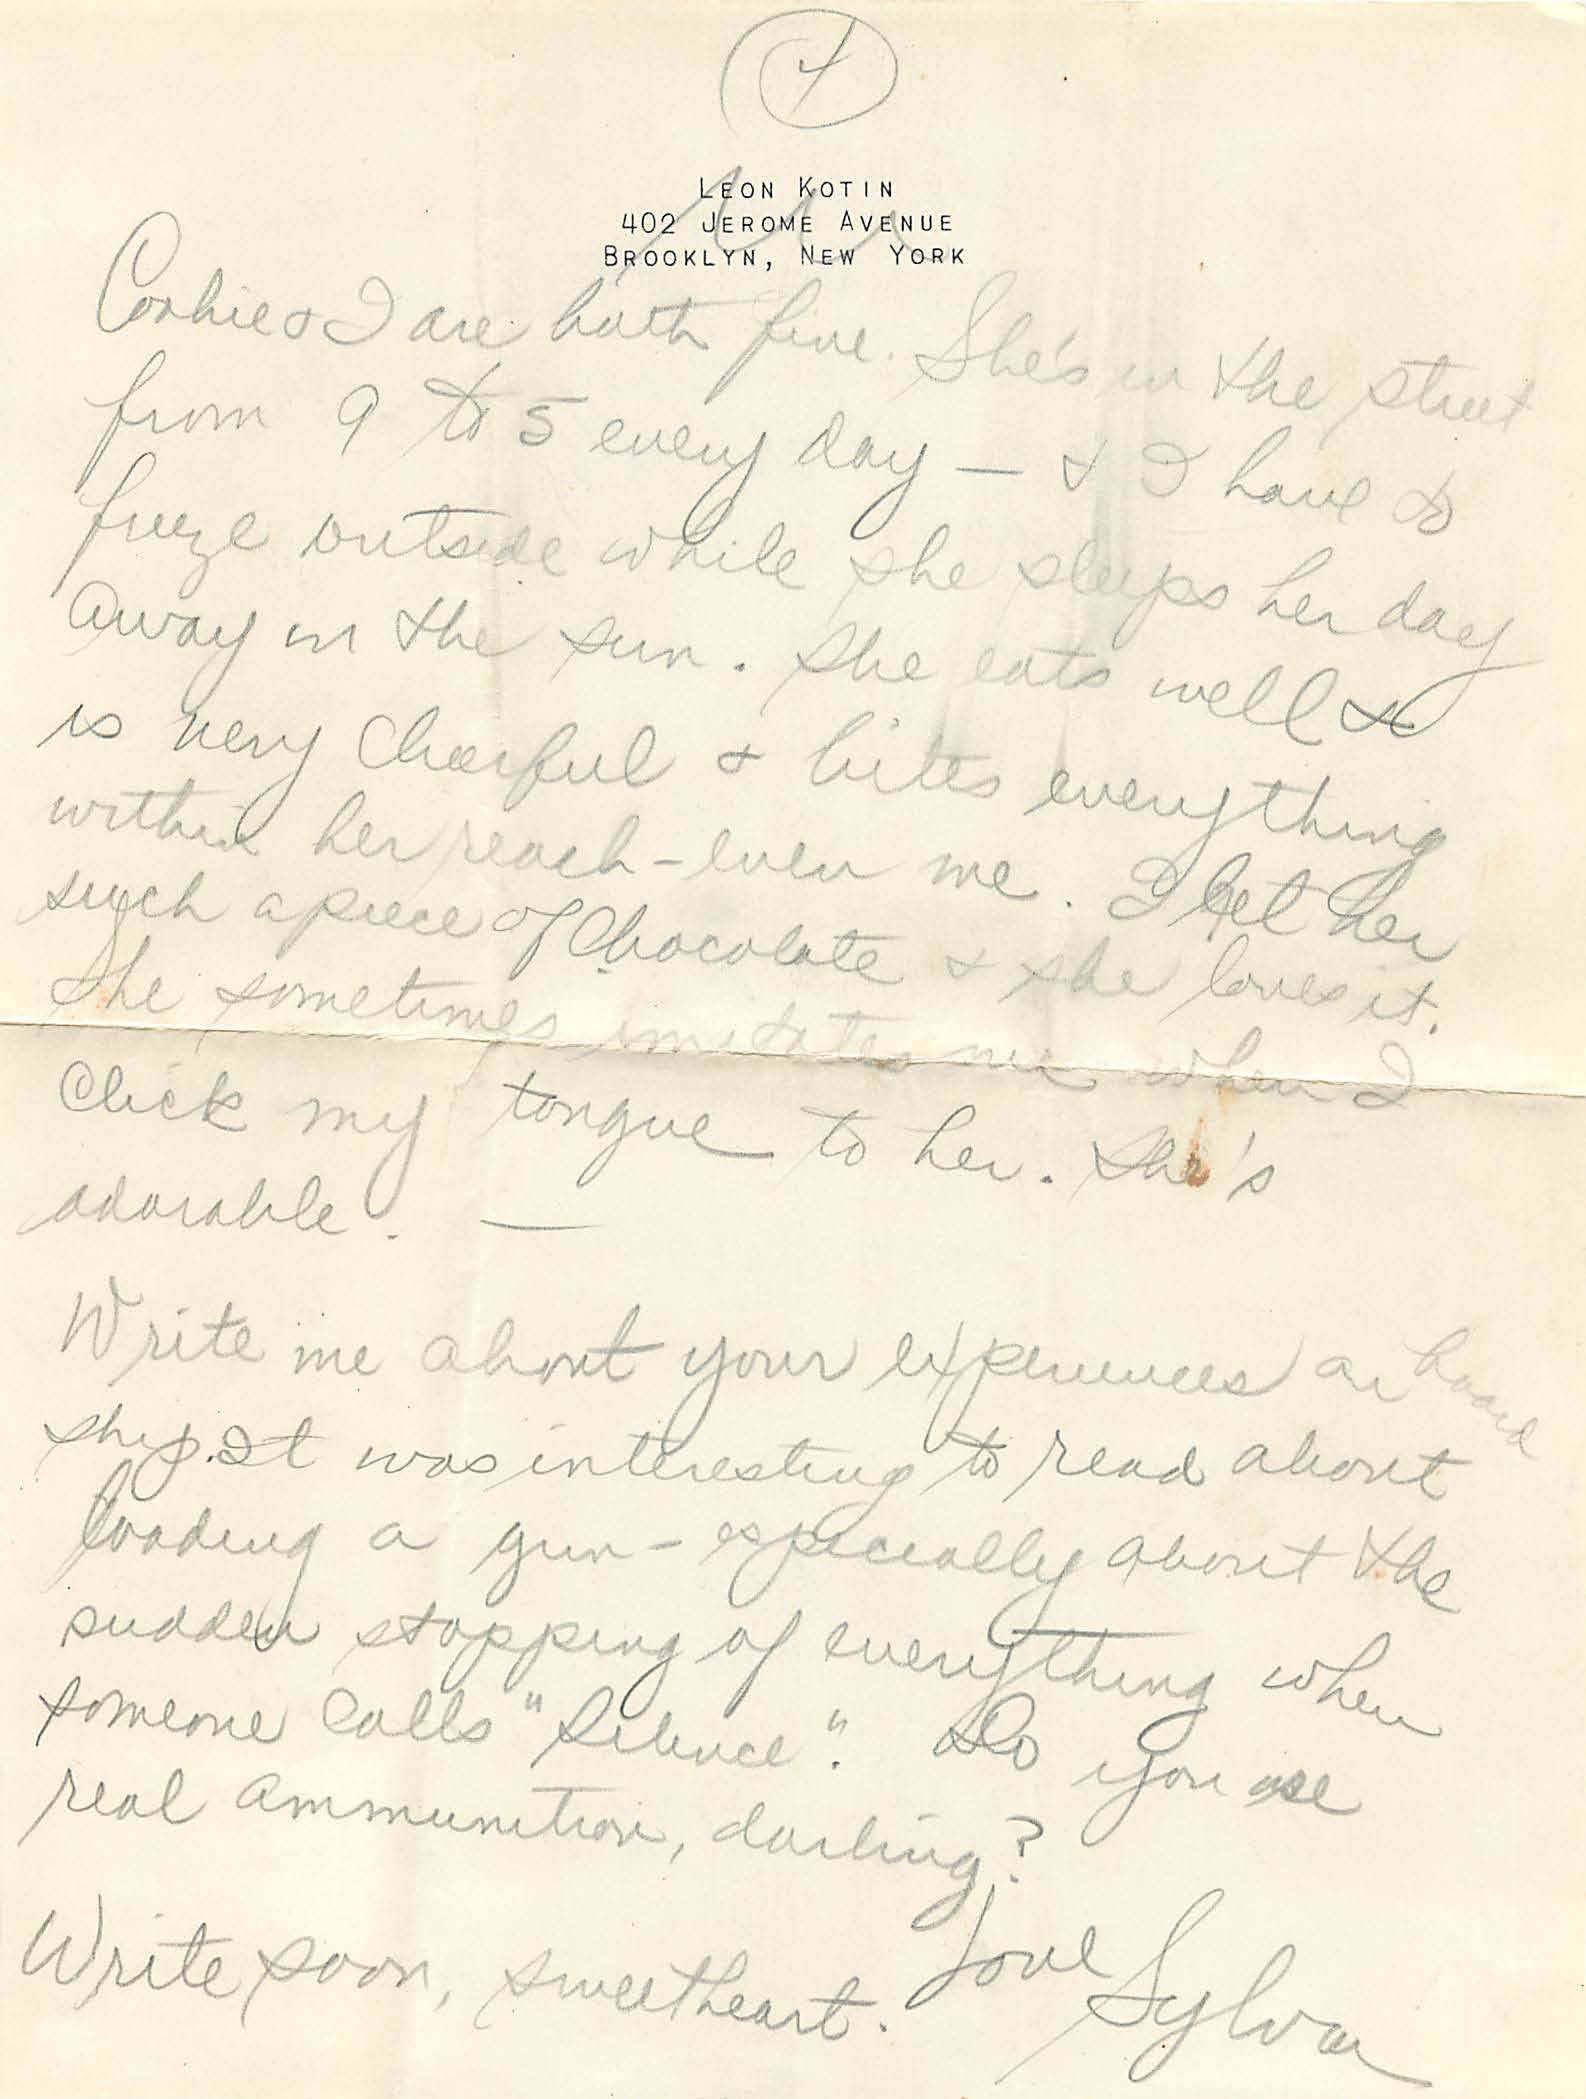 4
LEON KOTIN
402 JEROME AVENUE
BROOKLYN, NEW YORK
Cookie & I are both fine. She's in the street
from 9 to 5 every day — & I have to
freeze outside while she sleeps her day
away in the sun. She eats well &
is very cheerful & bites everything
within her reach - even me. I let her
suck a piece of chocolate & she loves it.
She sometimes imitates me when I
click my tongue to her. She's
adorable. —
Write me about your experiences on board
ship. It was interesting to read about
loading a gun - especially about the
sudden stopping of everything when
someone calls "Silence". Do you use
real ammunition, darling?
Write soon, sweetheart.
Love
Sylvia